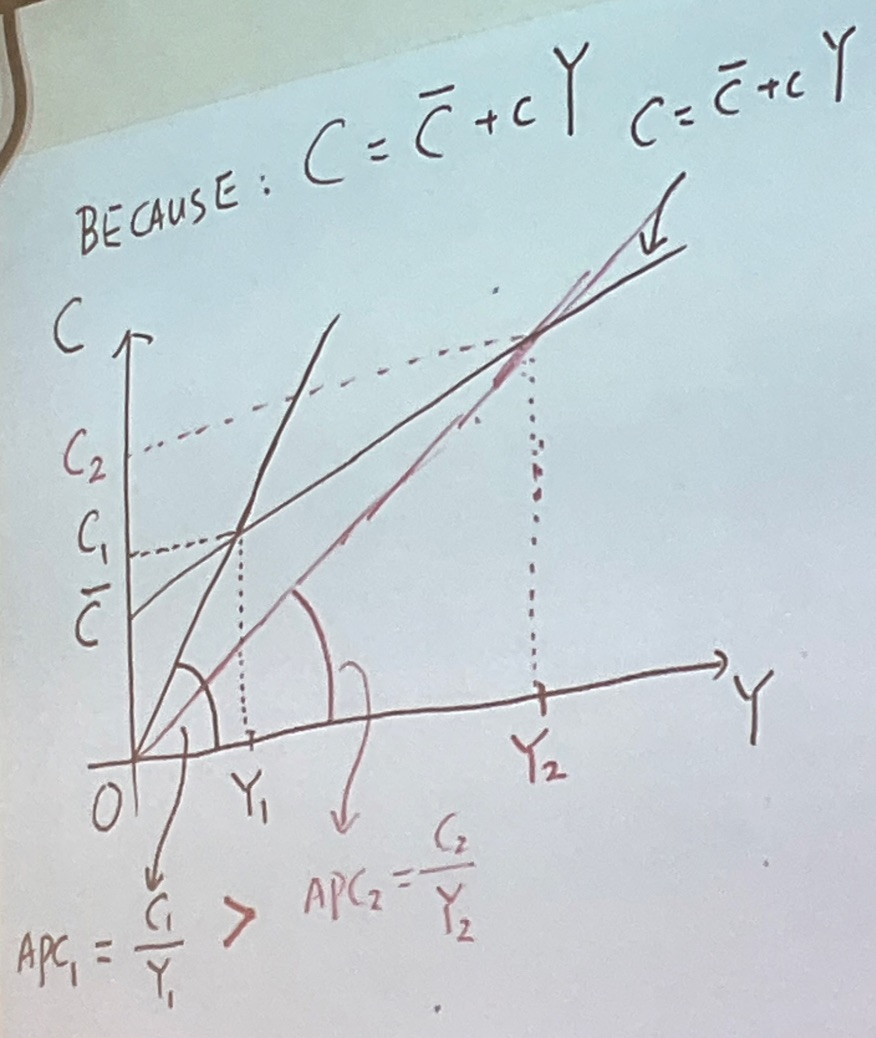 BECAUSE: C = C̄ + cY C = C̄ + cY
C
C₂
C₁
C̄
O
Y₁
Y₂
Y
APC₁ = C₁/Y₁ > APC₂ = C₂/Y₂